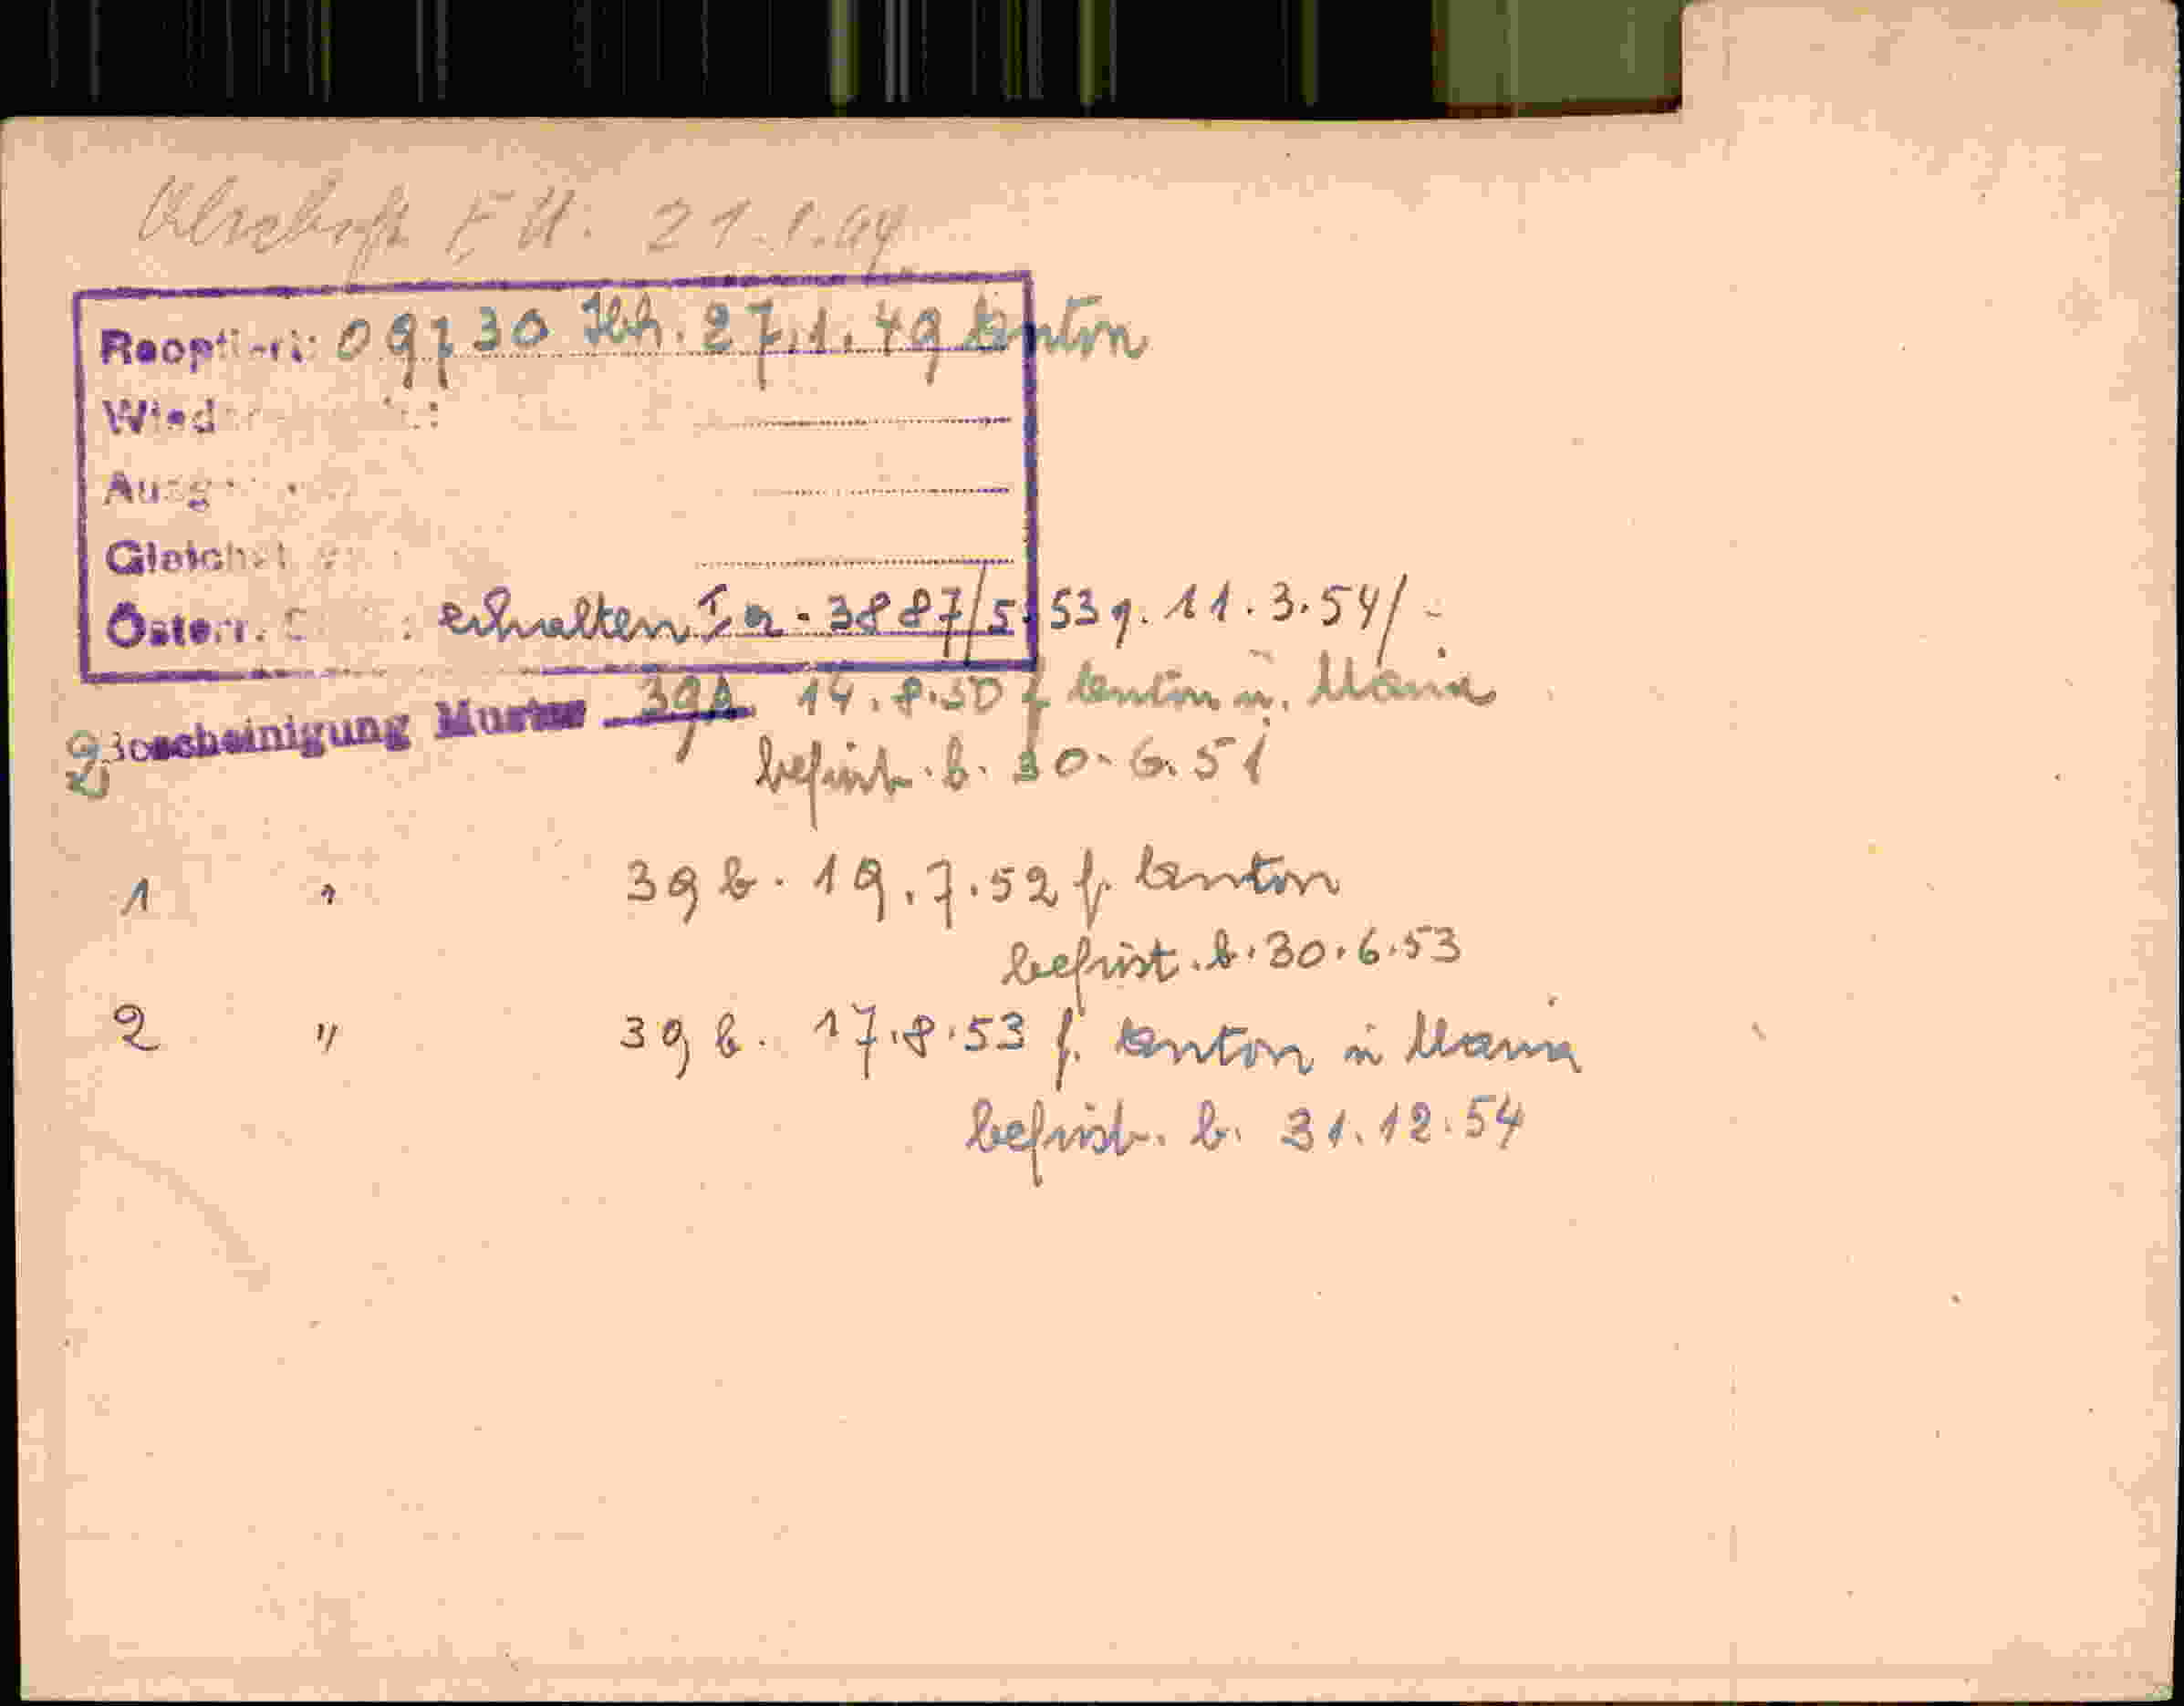 Abschrift E U. 21.1.49
Reoptiert: 09730 Ibk. 27.1.49 Anton
Wied
Ausg
Gleichst
Österr. erhalten Ia-3887/5-53 v. 11.3.54/-
2 Bescheinigung Muster 39b 14.8.50 f Anton u. Maria
befrist. b. 30.6.51
1 " 39 b. 19.7.52 f. Anton
befrist. b. 30.6.53
2 " 39 b. 17.8.53 f. Anton u Maria
befrist. b. 31.12.54